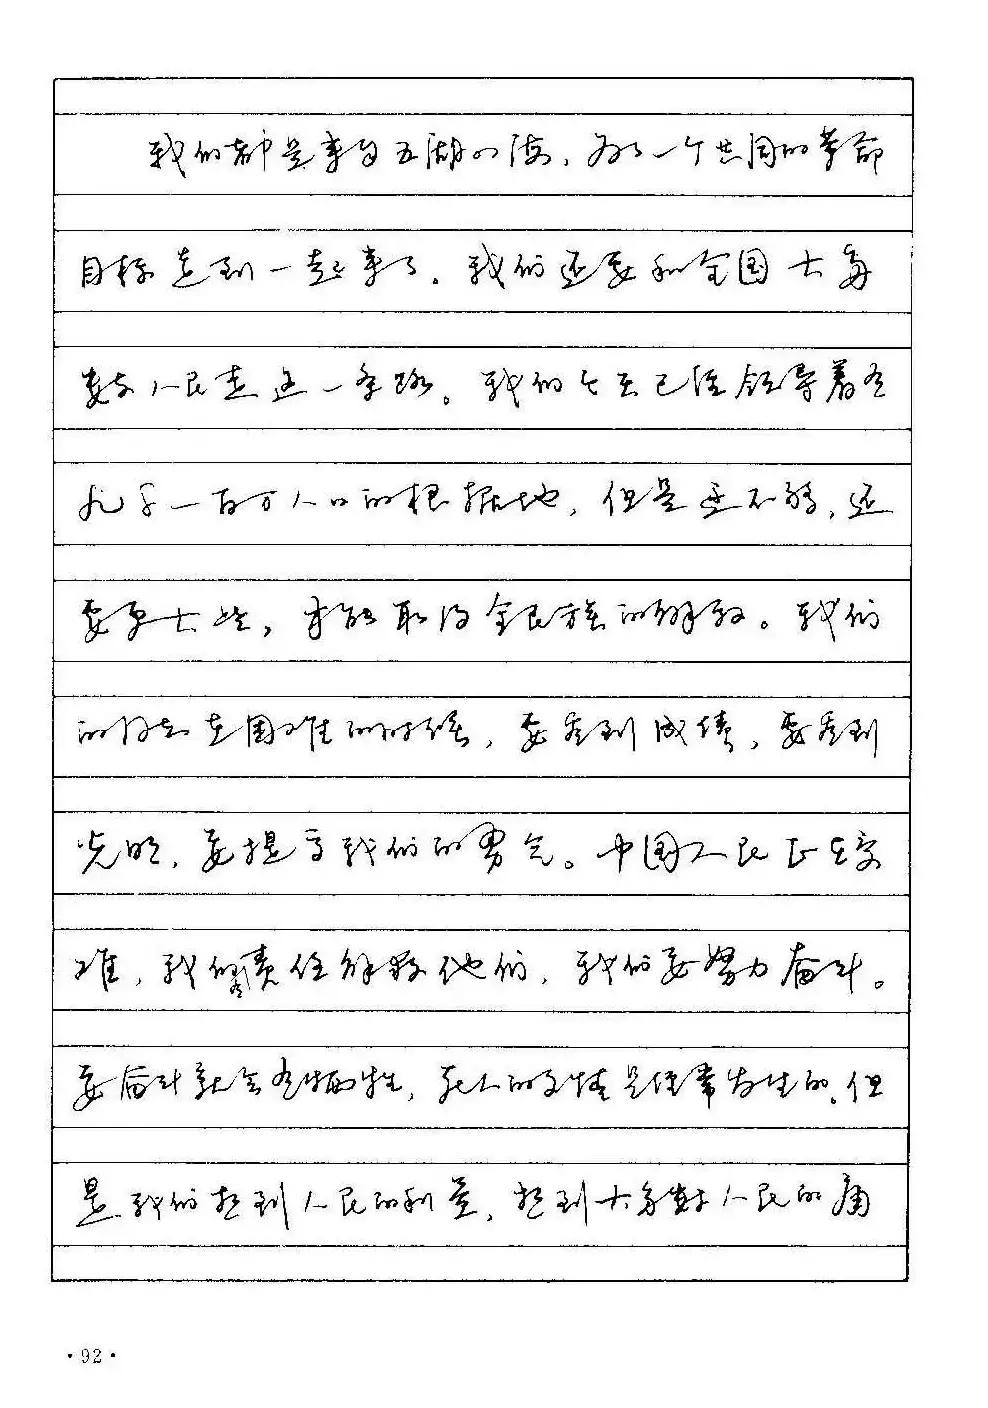 我们都是来自五湖四海，为了一个共同的革命
目标走到一起来了。我们还要和全国大多
数人民走这一条路。我们今天已经领导着有
九千一百万人口的根据地，但是还不够，还
要更大些，才能取得全民族的解放。我们
的同志在困难的时候，要看到成绩，要看到
光明，要提高我们的勇气。中国人民正在受
难，我们有责任解救他们，我们要努力奋斗。
要奋斗就会有牺牲，死人的事情是经常发生的。但
是我们想到人民的利益，想到大多数人民的痛
·92·